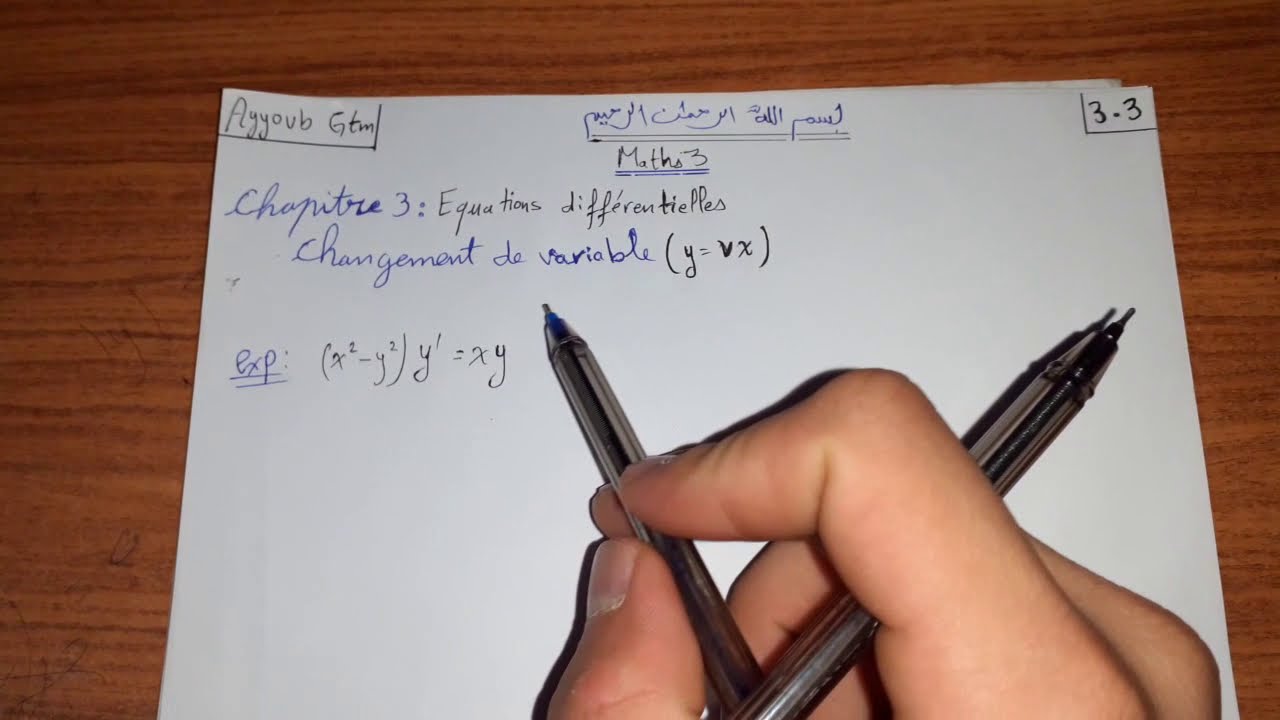 Ayyoub Gtm
بسم الله الرحمان الرحيم
3.3
Maths 3
Chapitre 3 : Equations différentielles
Changement de variable (y = vx)
exp : (x² - y²) y' = xy